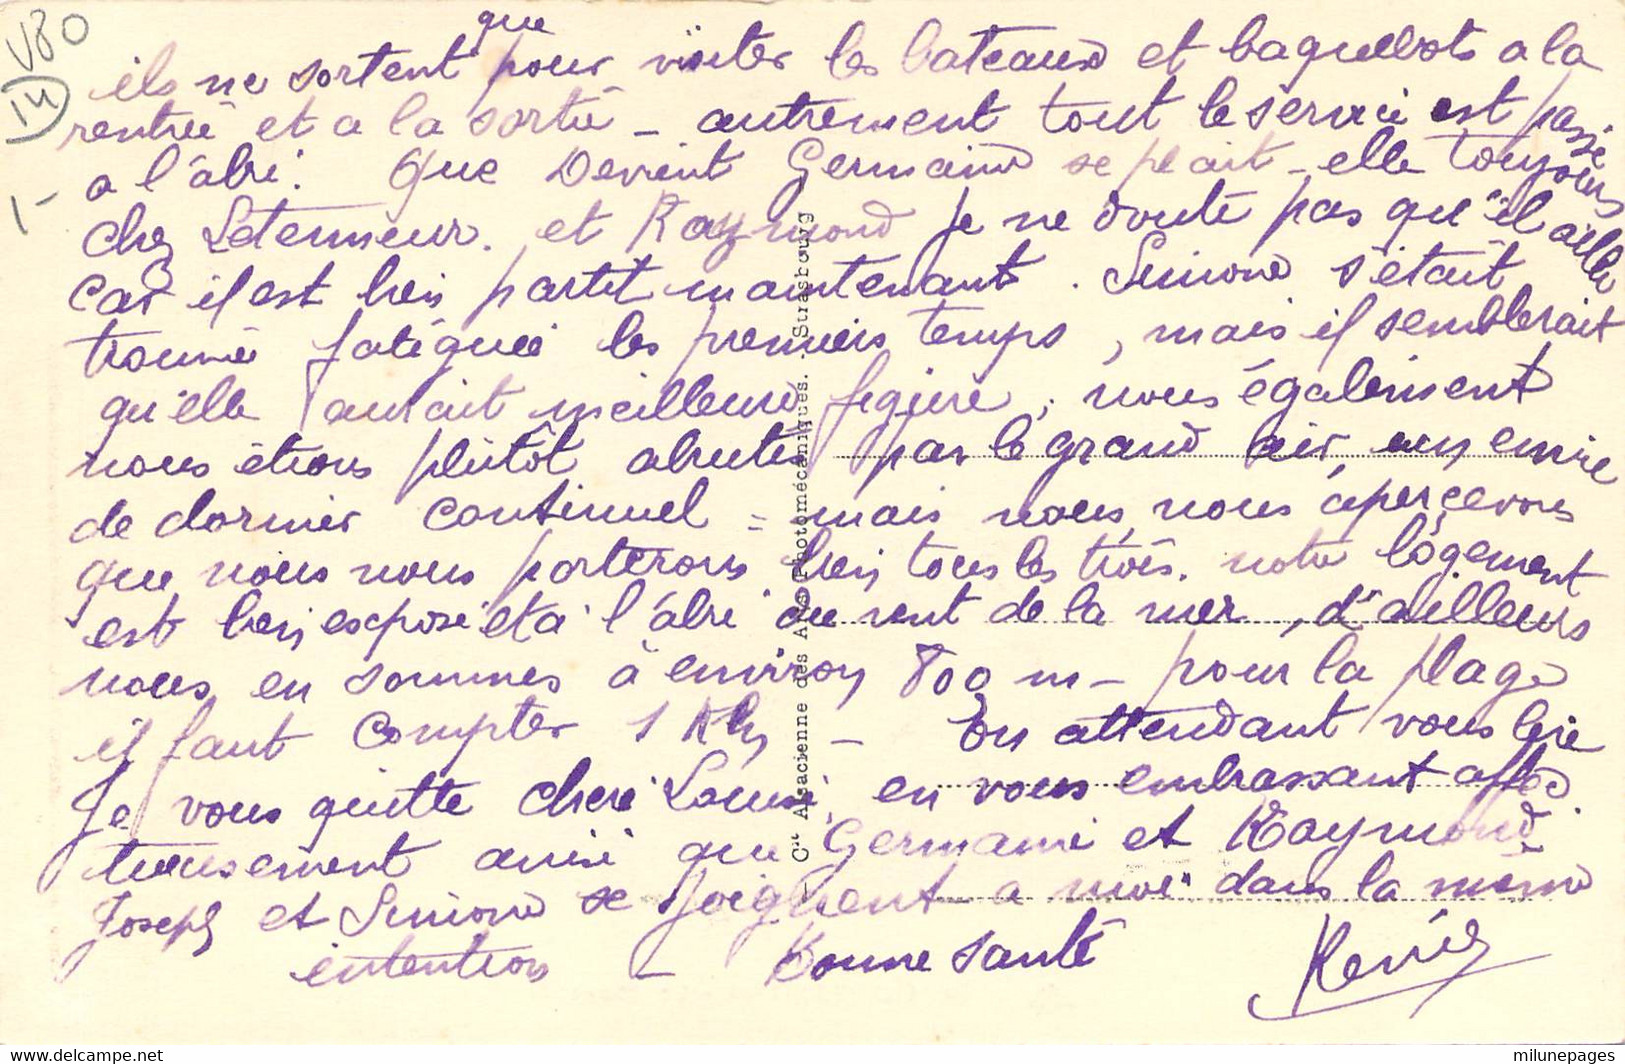 V80
14
1-
ils ne sortent que pour visiter les bateaux et baquebots a la
rentrée et a la sortie - autrement tout le service est passé
a l'abri. Que devient Germaine se plait-elle toujours
chez Letenneur. et Raymond je ne doute pas qu'il aille
car il est bien partit maintenant. Simone s'était
trouvée fatiguée les premiers temps, mais il semblerait
qu'elle aurait meilleure figure, nous également
nous étions plutôt abrutés par le grand air, un envie
de dormir continuel = mais nous nous apercevons
que nous nous porterons bien tous les trois. notre logement
est bien exposé et a l'abri du vent de la mer, d'ailleurs
nous en sommes à environ 800 m - pour la plage
il faut compter 1 Klm - En attendant vous lire
Je vous quitte chère Louise, en vous embrassant affec
tueusement ainsi que Germaine et Raymond.
Joseph et Simone se joignent a moi dans la meme
intention - Bonne santé
Renée
Cie Alsacienne des Arts Photomécaniques. - Strasbourg
www.delcampe.net
milunepages